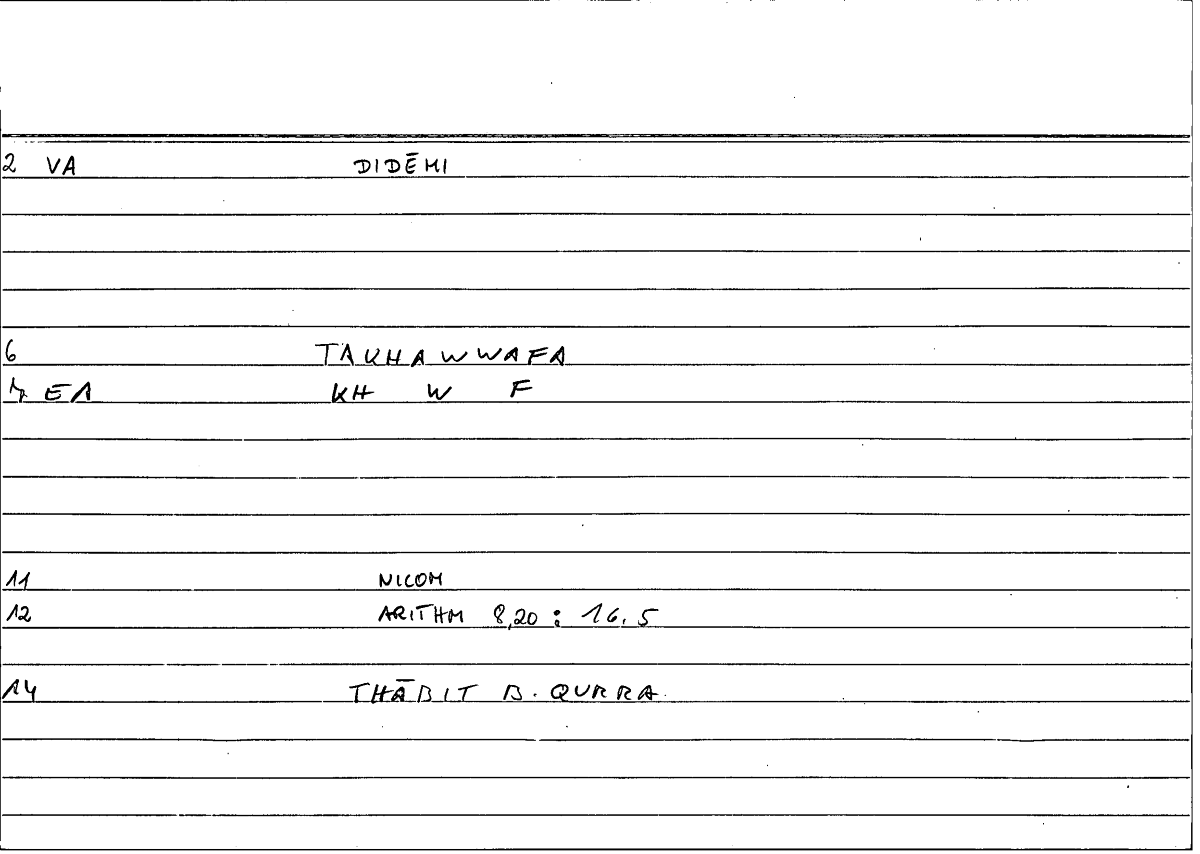 2 VA DIDĒMI
6 TAKHAWWAFA
7 EA KH W F
11 NICOM
12 ARITHM 8,20 : 16.5
14 THĀBIT B. QURRA